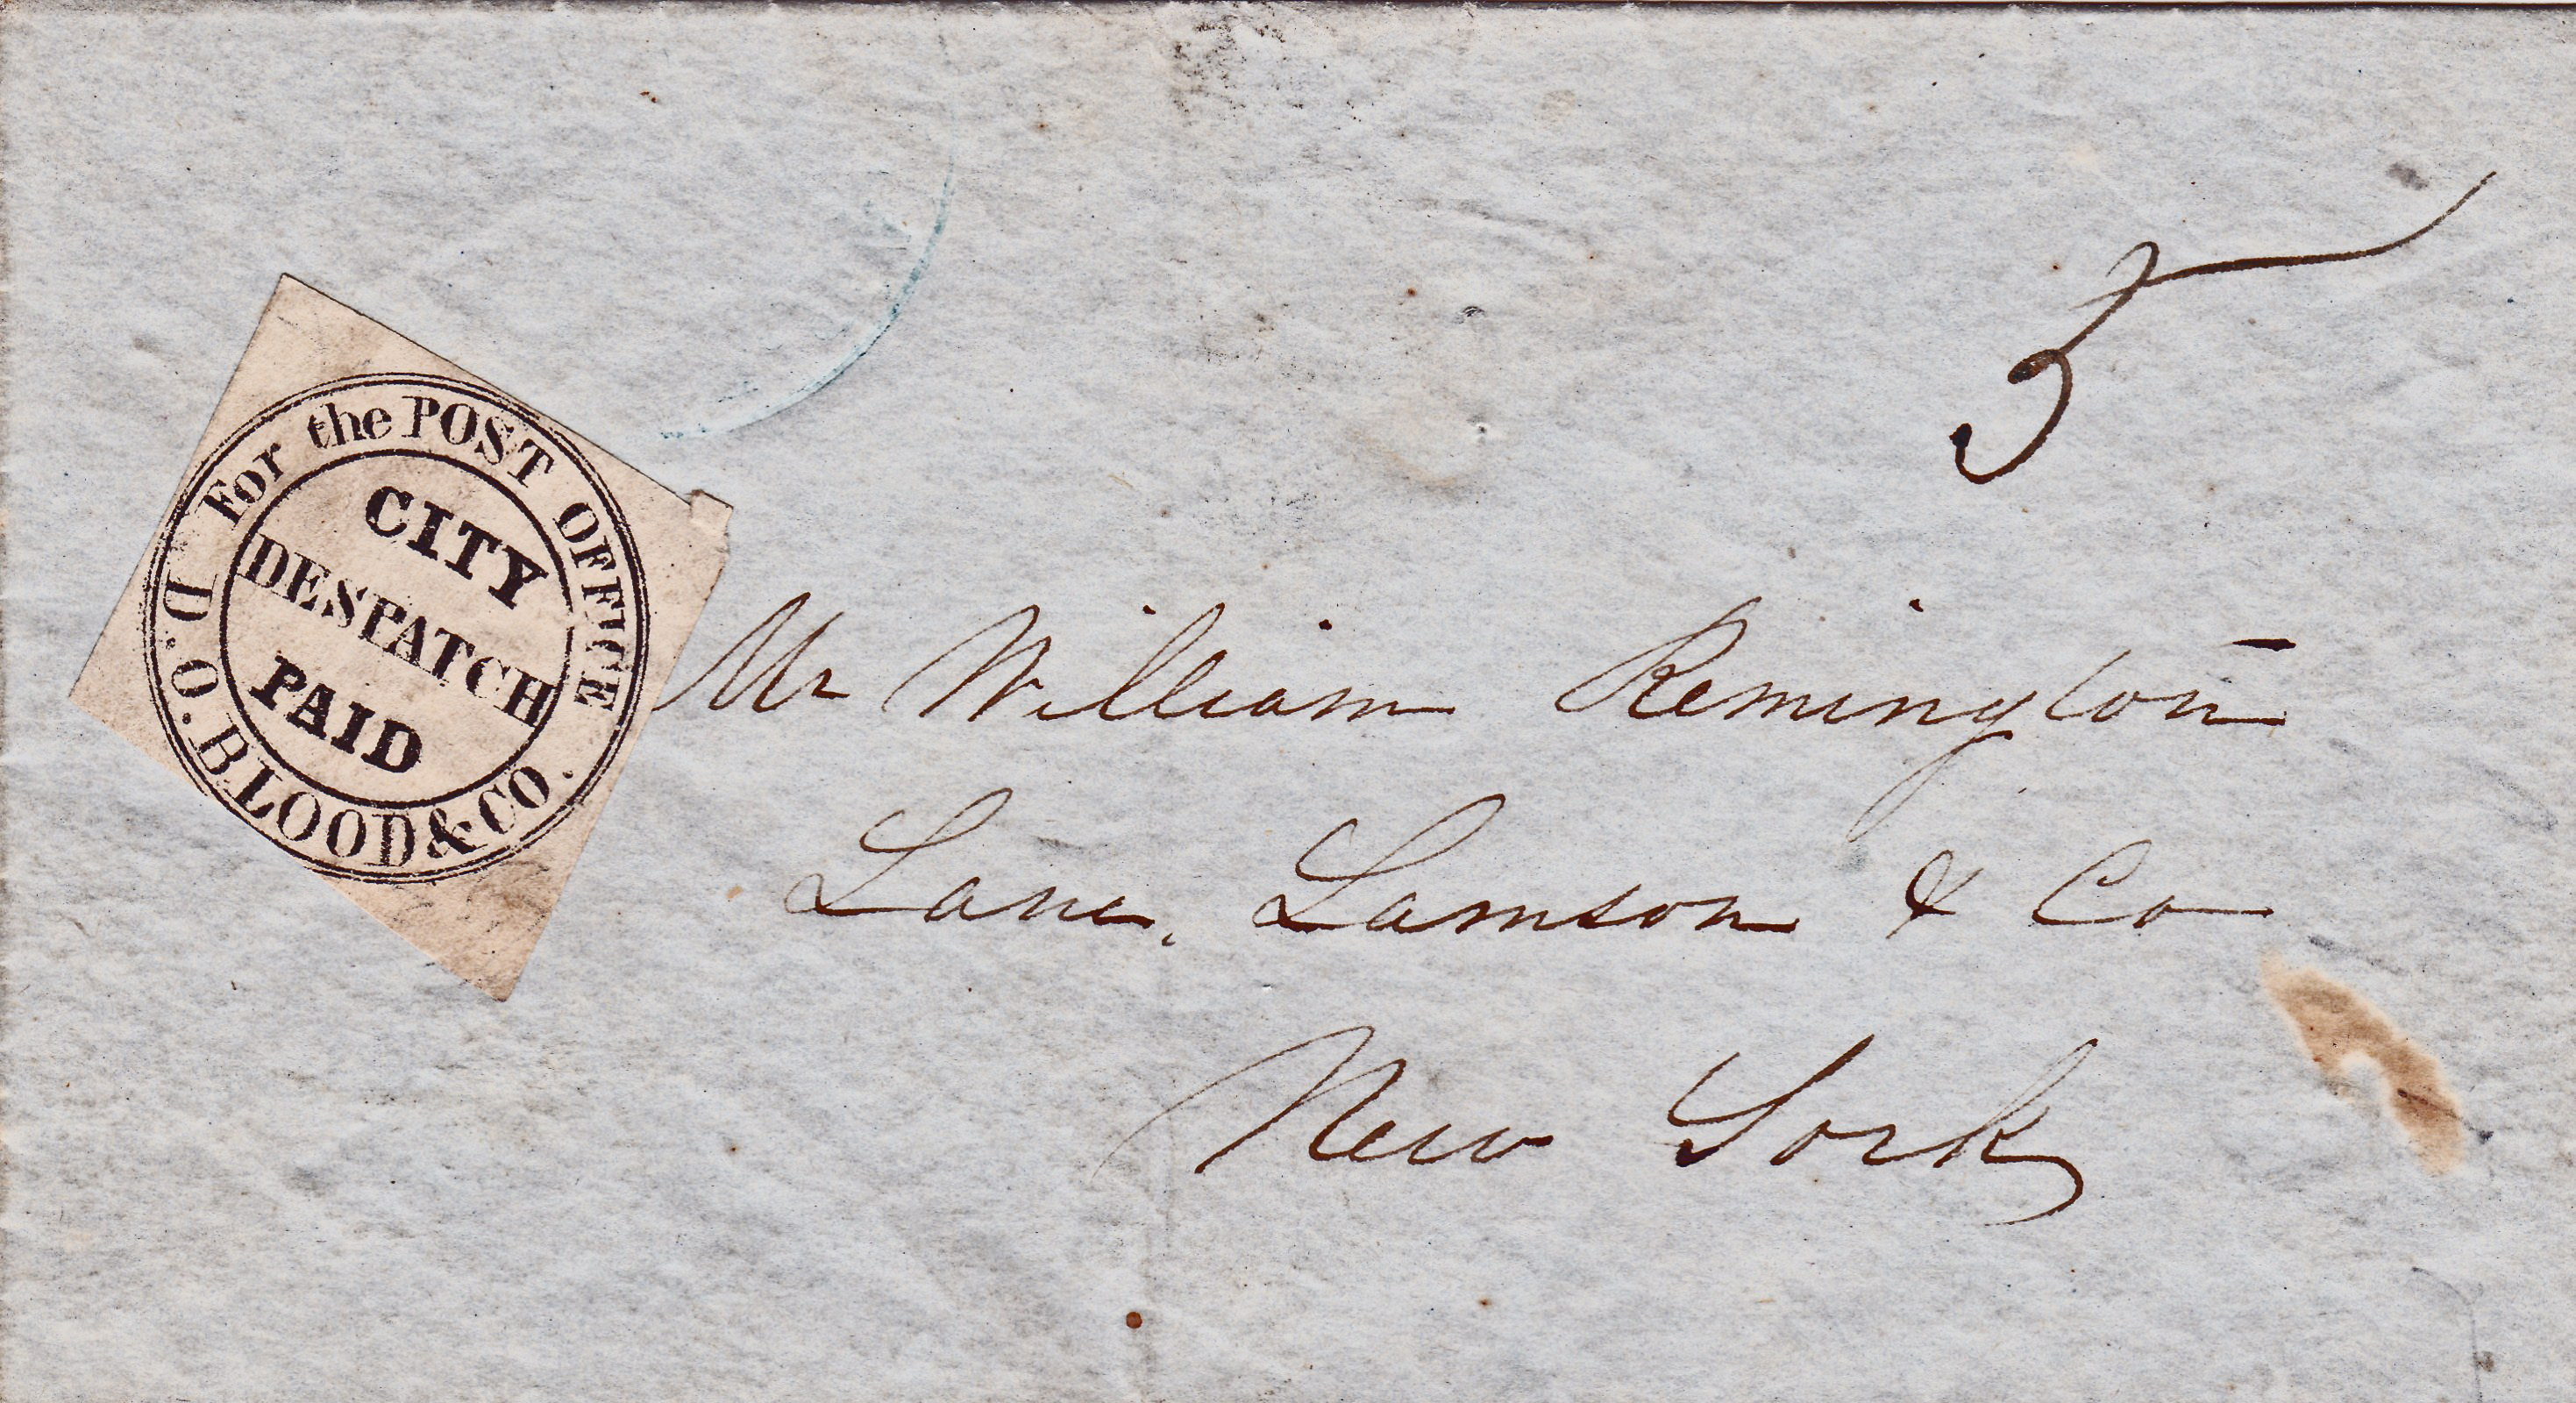 For the POST OFFICE
CITY
DESPATCH
PAID
D.O.BLOOD&CO.
5
Mr William Remington
Lane, Lamson & Co
New York